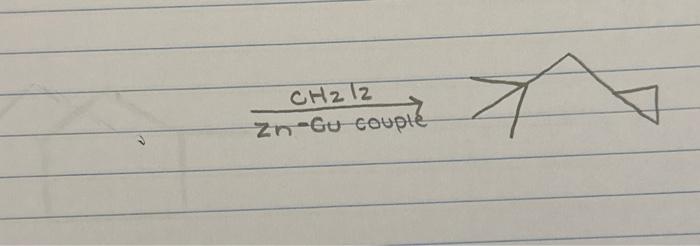 CH2I2
Zn-Cu couple